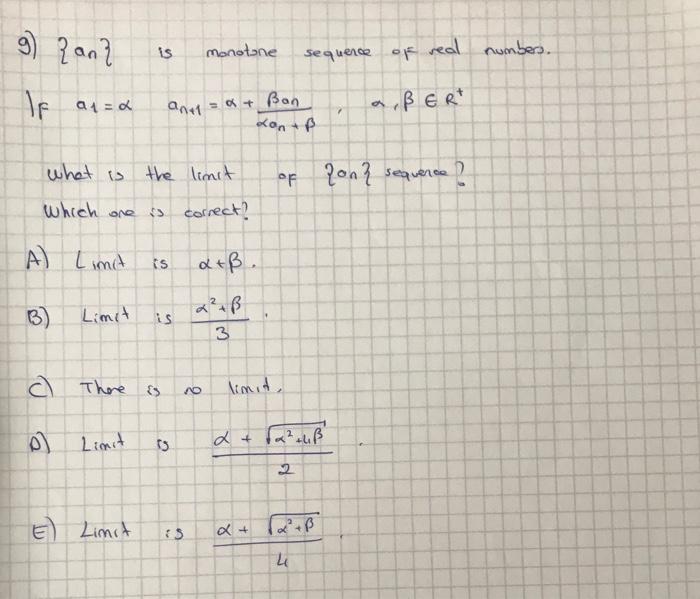 9) {an} is monotone sequence of real numbers.
If a1=α an+1 = α + βan / αan + β , α, β ∈ R+
What is the limit of {an} sequence?
Which one is correct?
A) Limit is α+β.
B) Limit is α²+β / 3 .
C) There is no limit.
D) Limit is α + √α²+4β / 2 .
E) Limit is α + √α²+β / 4 .